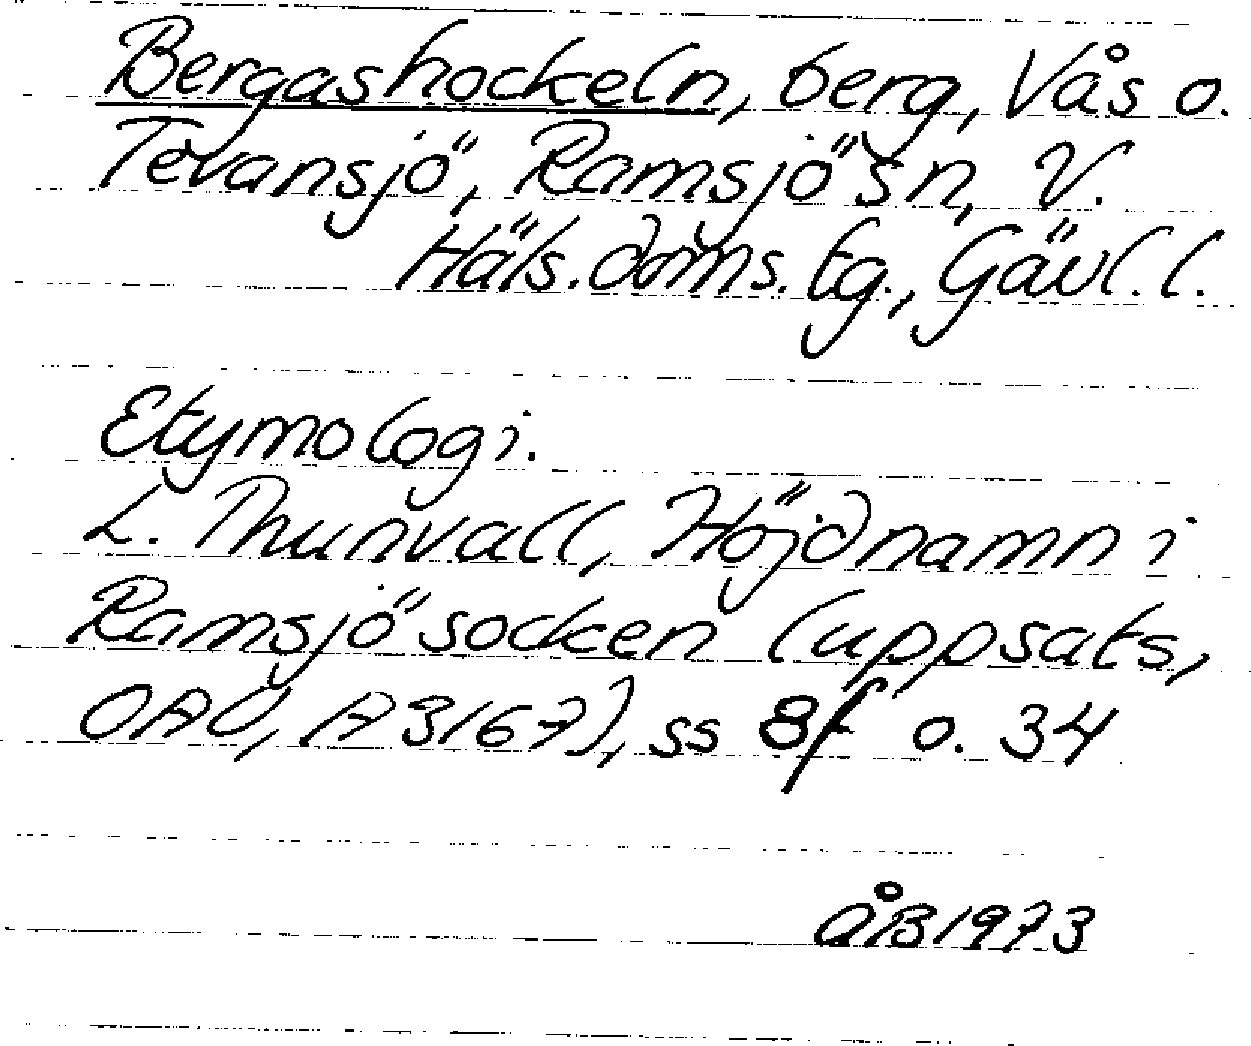 Bergashockeln, berg, Vås o.
Tevansjö, Ramsjö sn, V.
Häls. doms. tg., Gävl. l.
Etymologi.
L. Thunvall, Höjdnamn i
Ramsjö socken (uppsats,
OAU, A 3167), ss 8f o. 34
ÅB 1973